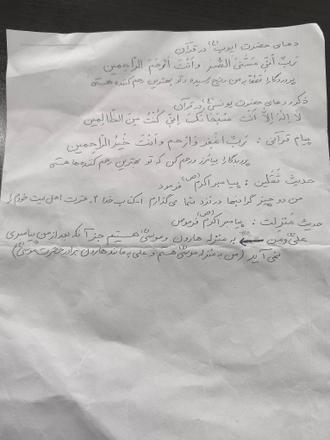 دعای حضرت ایوب (ع) در قرآن
رَبِّ أَنِّي مَسَّنِيَ الضُّرُّ وَأَنْتَ أَرْحَمُ الرَّاحِمِينَ
پروردگارا به من رنج رسیده و تو بهترین رحم کننده هستی
ذکر و دعای حضرت یونس (ع) در قرآن
لا إِلهَ إِلَّا أَنْتَ سُبْحَانَكَ إِنِّي كُنْتُ مِنَ الظَّالِمِينَ
پیام قرآنی : رَبِّ اغْفِرْ وَارْحَمْ وَأَنْتَ خَيْرُ الرَّاحِمِينَ
پروردگارا بیامرز و رحم کن که تو بهترین رحم کننده‌ها هستی
حدیث ثقلین : پیامبر اکرم (ص) فرمود
من دو چیز گرانبها در نزد شما می‌گذارم ۱ـ کتاب خدا ۲ـ عترت اهل بیت خودم را
حدیث منزلت : پیامبر اکرم (ص) فرمودن
علی و من به منزله هارون و موسی هستیم جز آنکه بعد از من پیامبری
نمی آید (من به منزله موسی هستم و علی به مانند هارون برادر حضرت موسی)